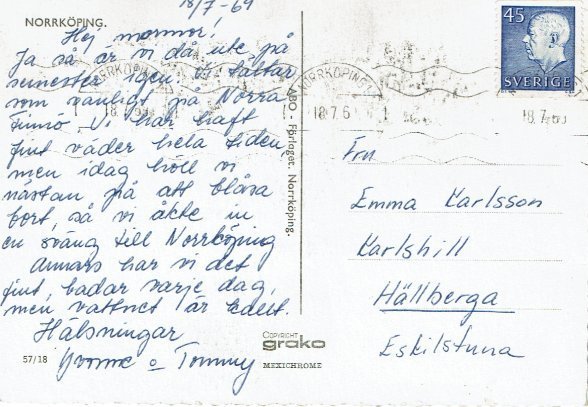 18/7-69
NORRKÖPING.
Hej mormor!
Ja så är vi då ute på
semester igen. Vi tältar
som vanligt på Norra
Finnö. Vi har haft
fint väder hela tiden,
men idag höll vi
nästan på att blåsa
bort, så vi åkte in
en sväng till Norrköping
Annars har vi det
fint, badar varje dag,
men vattnet är kallt.
Hälsningar
Yvonne o Tommy
57/18
ABO - Förlaget, Norrköping.
COPYRIGHT
grako
MEXICHROME
NORRKÖPING
18.7.6
NORRKÖPING
18.7.6
18.7.
45
SVERIGE
Fru
Emma Karlsson
Karlshill
Hällberga
Eskilstuna